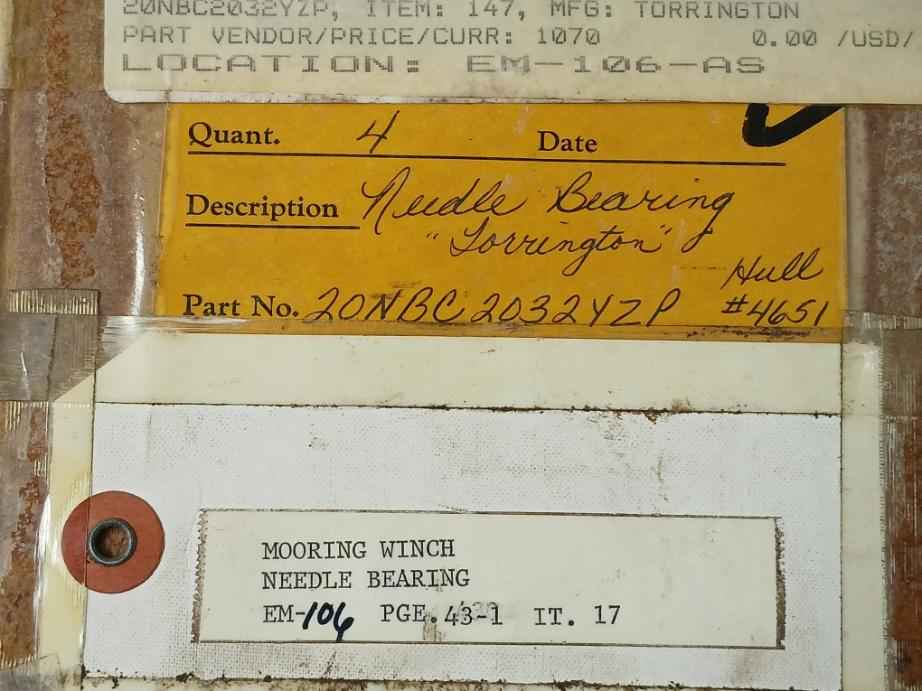 20NBC2032YZP, ITEM: 147, MFG: TORRINGTON
PART VENDOR/PRICE/CURR: 1070 0.00 /USD/
LOCATION: EM-106-AS
Quant. 4 Date
Description Needle Bearing
"Torrington"
Hull
Part No. 20NBC2032YZP #4651
MOORING WINCH
NEEDLE BEARING
EM-106 PGE.43-1 IT. 17